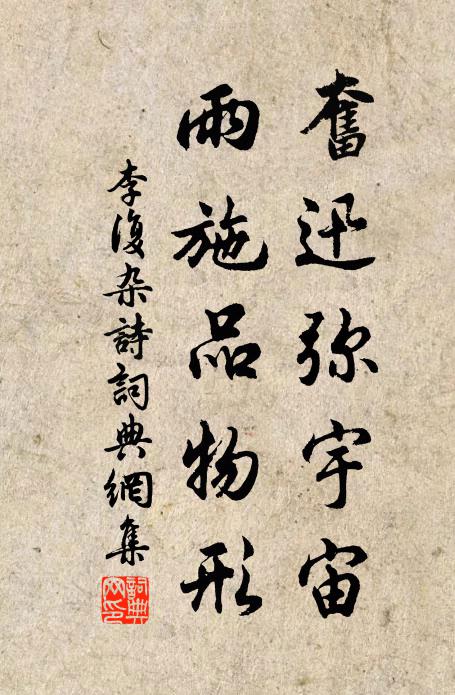 奮迅弥宇宙
雨施品物形
李復杂詩詞典網集
詞典网印